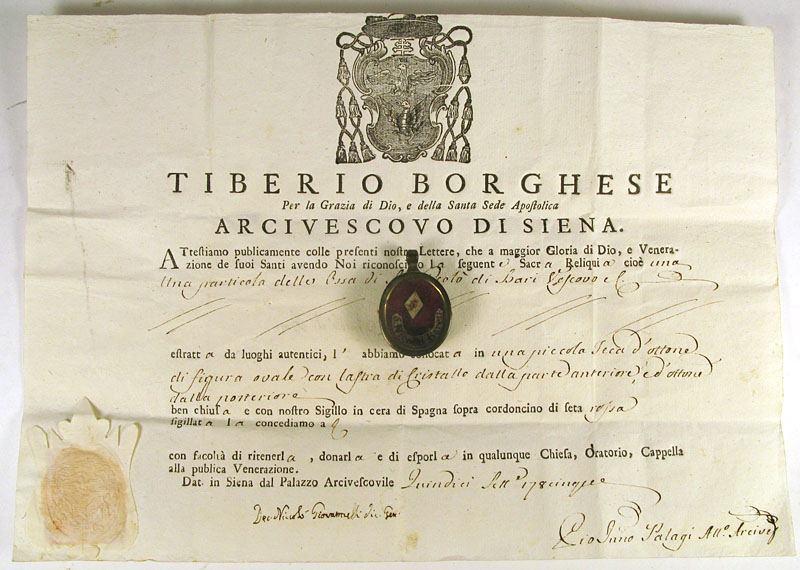 TIBERIO BORGHESE
Per la Grazia di Dio, e della Santa Sede Apoſtolica
ARCIVESCOVO DI SIENA.
ATteſtiamo publicamente colle preſenti noſtre Lettere, che a maggior Gloria di Dio, e Venera-
zione de ſuoi Santi avendo Noi riconoſciuto La ſeguente Sacra Reliquia cioè una
Una particola delle Ossa di Nicolò di Bari Vescovo e C.
eſtratta da luoghi autentici, l' abbiamo collocata in una piccola Teca d'ottone
di figura ovale con lastra di Cristallo dalla parte anteriore, e d'ottone
dalla posteriore
ben chiuſa e con noſtro Sigillo in cera di Spagna ſopra cordoncino di ſeta rossa
ſigillata La concediamo a
con facoltà di ritenerla, donarla e di eſporla in qualunque Chieſa, Oratorio, Cappella
alla publica Venerazione.
Dat. in Siena dal Palazzo Arciveſcovile Quindici Sett.e 178cinque
Palagi Att.o Arciv